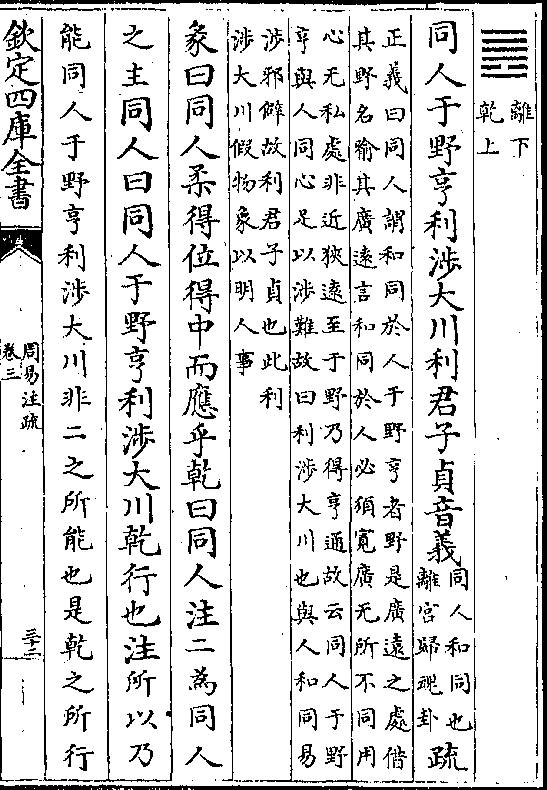 離下
乾上
同人于野亨利涉大川利君子貞音義
同人和同也
離宮歸魂卦
疏
正義曰同人謂和同於人于野亨者野是廣遠之處借
其野名喻其廣遠言和同於人必須寛廣无所不同用
心无私處非近狹遠至于野乃得亨通故云同人于野
亨與人同心足以涉難故曰利涉大川也與人和同易
涉邪僻故利君子貞也此利
涉大川假物象以明人事
彖曰同人柔得位得中而應乎乾曰同人注二為同人
之主同人曰同人于野亨利涉大川乾行也注所以乃
能同人于野亨利涉大川非二之所能也是乾之所行
欽定四庫全書
周易注疏
卷三